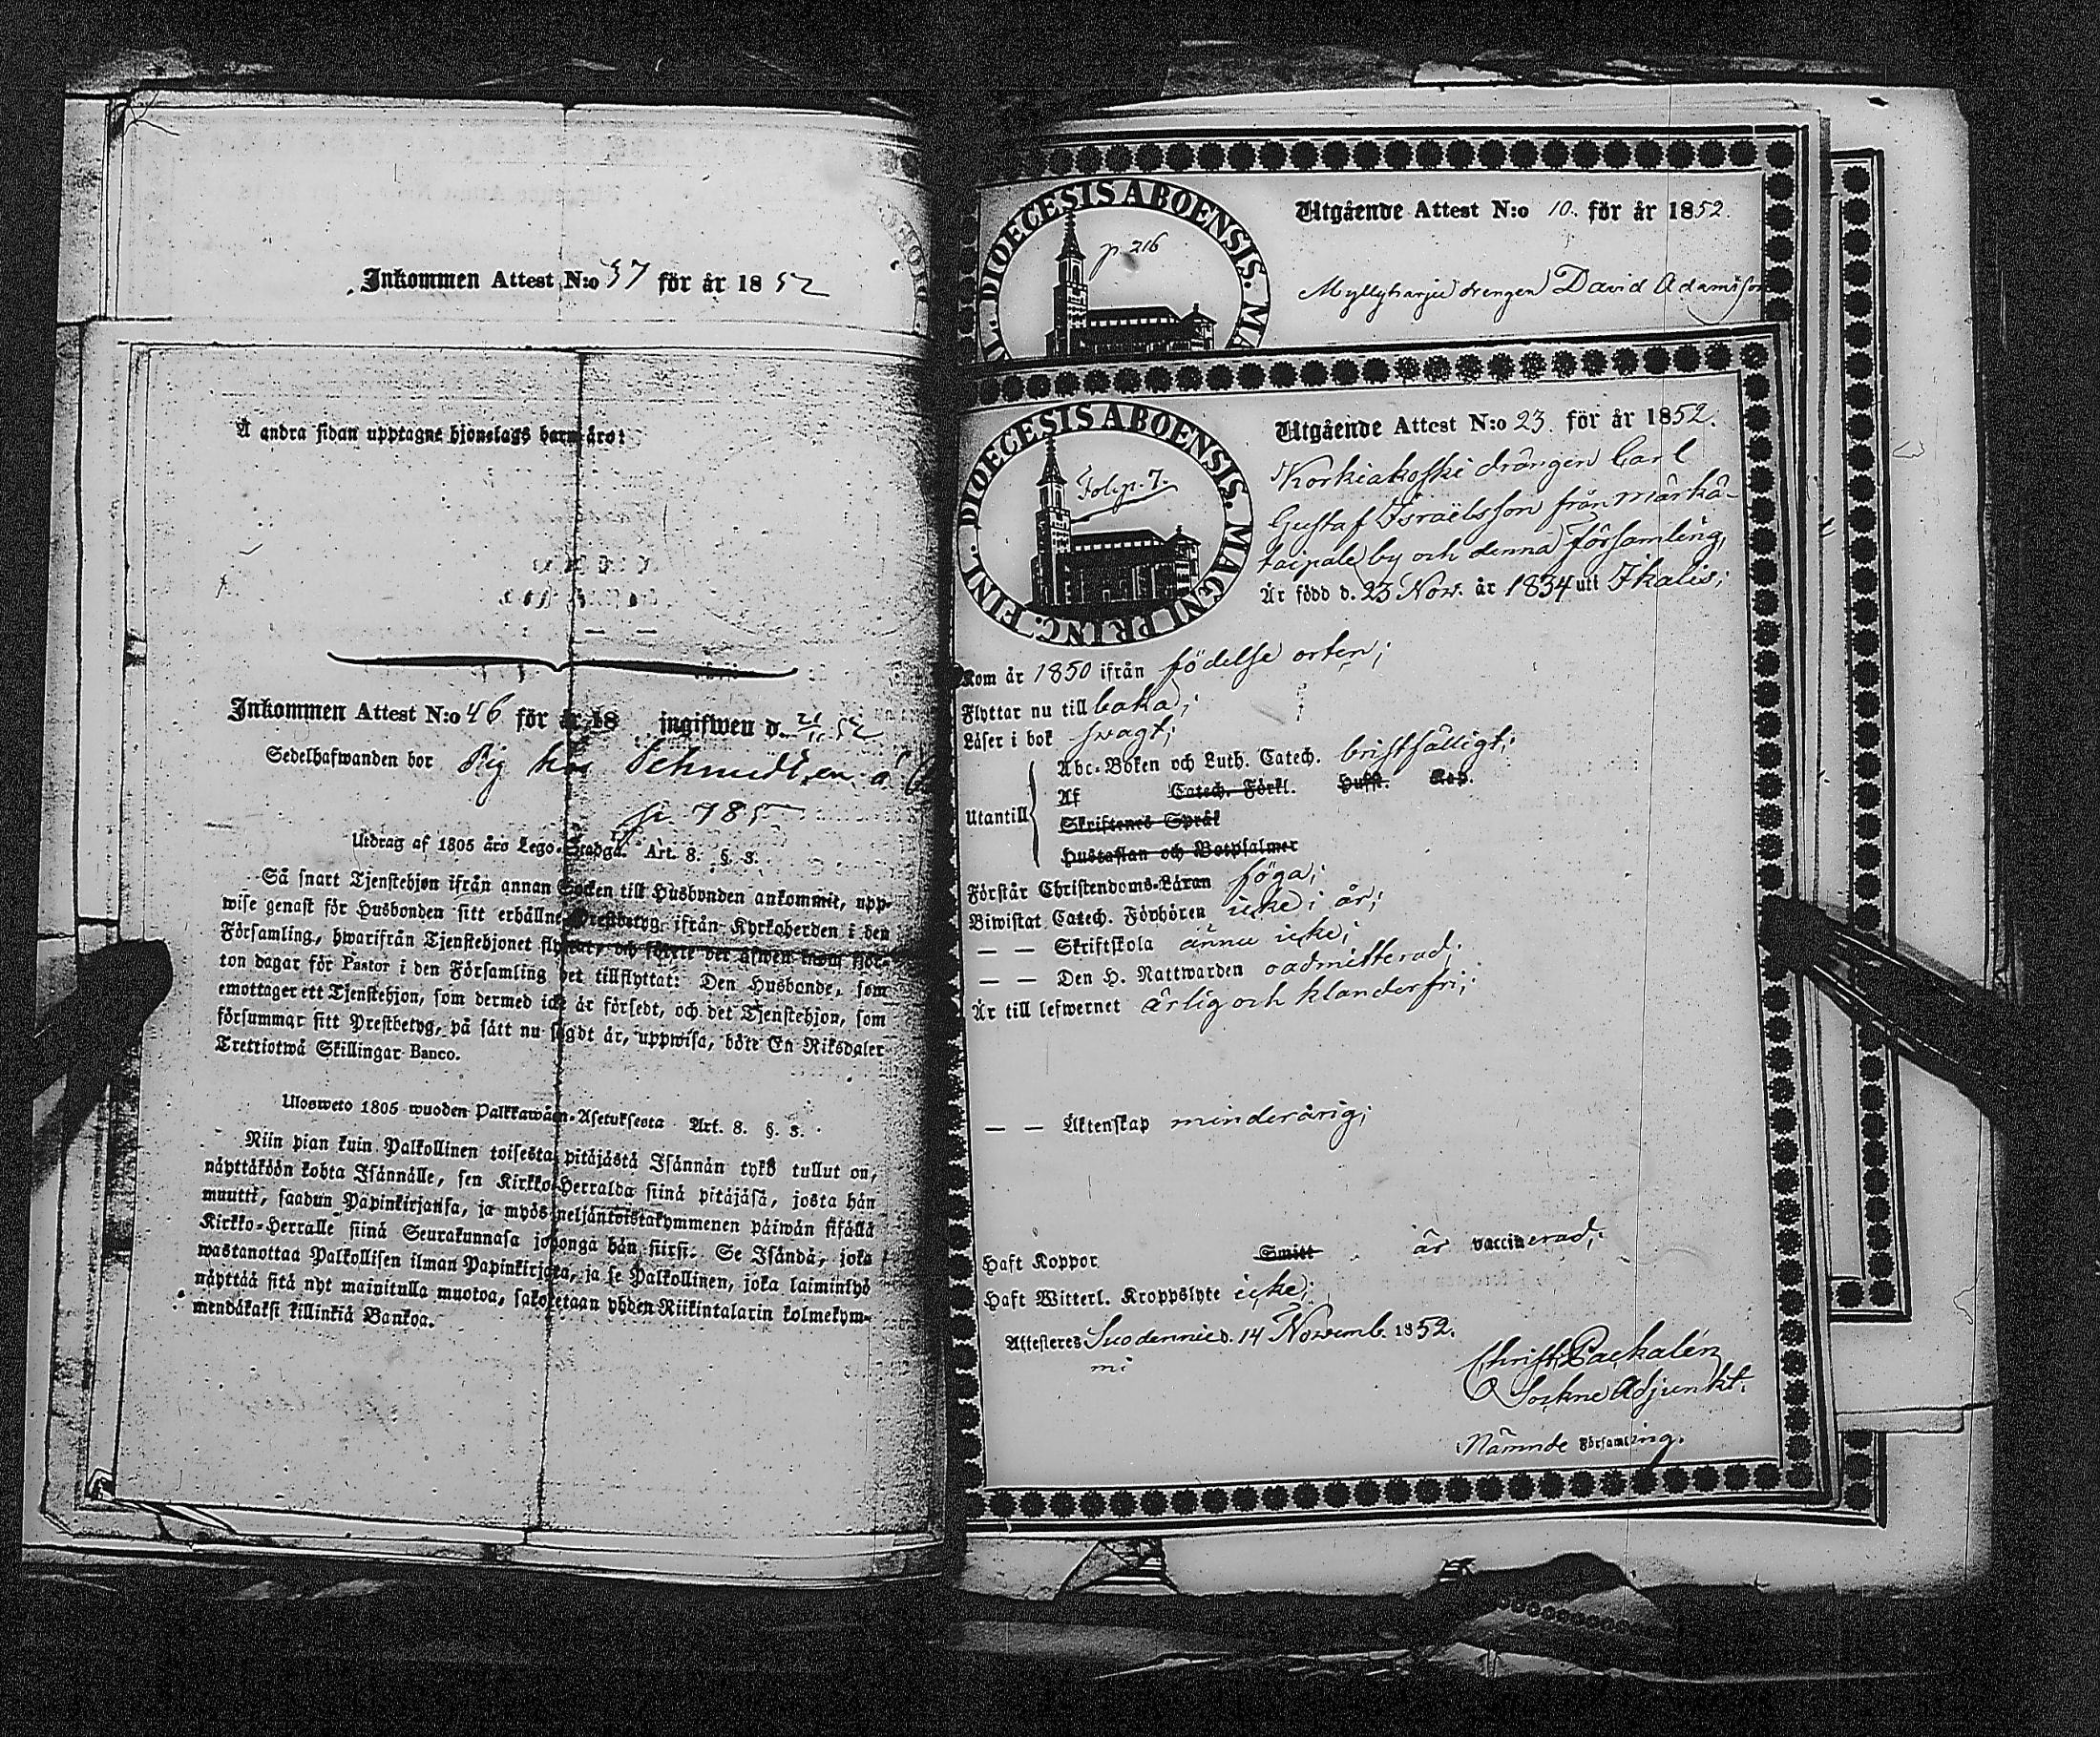 Inkommen Attest N:o 37 för år 1852
Å andra sidan upptagne hjonelags barn äro:
Inkommen Attest N:o 46 för år 18 ingifwen d. 21/11 52
Sedelhafwanden bor Pig hos Schmidt
p. 785
Utdrag af 1805 års Lego-Stadga. Art. 8. §. 3.
Så snart Tjenstehjon ifrån annan Socken till Husbonden ankommit, upp-
wise genast för Husbonden sitt erhållne Prestbetyg ifrån Kyrkoherden i den
Församling, hwarifrån Tjenstehjonet flyttat, och förete det äfwen inom fjor-
ton dagar för Pastor i den Församling det tillflyttat: Den Husbonde, som
emottager ett Tjenstehjon, som dermed icke är försedt, och det Tjenstehjon, som
försummar sitt Prestbetyg, på sätt nu sagdt är, uppwisa, böte En Riksdaler
Trettiotwå Skillingar Banco.
Ulosweto 1805 wuoden Palkkawäen-Asetuksesta Art. 8. §. 3.
Niin pian kuin Palkollinen toisesta pitäjästä Isännän tykö tullut on,
näyttäköön kohta Isännälle, sen Kirkko-Herralda siinä pitäjäsä, josta hän
muutti, saadun Papinkirjansa, ja myös neljäntoistakymmenen päiwän sisällä
Kirkko-Herralle siinä Seurakunnasa johonga hän siirsi. Se Isändä, joka
wastanottaa Palkollisen ilman Papinkirjata, ja se Palkollinen, joka laiminlyö
näyttää sitä nyt mainitulla muotoa, sakotetaan yhden Riikintalarin kolmekym-
mendäkaksi killinkiä Bankoa.
DIOECESIS ABOENSIS. MA
p. 216
Utgående Attest N:o 10. för år 1852.
Myllyharju drengen David Adamsson
DIOECESIS ABOENSIS. MAGNI PRINC. FINL.
Fol. p. 7.
Utgående Attest N:o 23. för år 1852.
Korkiakoski drängen Carl
Gustaf Israëlsson från Märkä-
taipale by och denna Församling,
Är född d. 23 Nov. år 1834 uti Ikalis;
Kom år 1850 ifrån födelse orten;
Flyttar nu till baka;
Läser i bok svagt;
Abc-Boken och Luth. Catech. bristfälligt;
Utantill Af Catech. Förkl. Hufst. Kap.
Skriftenes Språk
Hustaflan och Botpsalmer
Förstår Christendoms-Läran föga;
Biwistat Catech. Förhören icke i år;
— — Skriftskola ännu icke;
— — Den H. Nattwarden oadmitterad;
Är till lefwernet ärlig och klanderfri;
— — Äktenskap minderårig;
Haft Koppor Smitt är vaccinerad;
Haft Witterl. Kroppslyte icke;
Attesteres Suodennie d. 14 Novemb. 1852.
mi
Christ. Packalén
Sockne Adjunkt.
i Nämnde Församling.